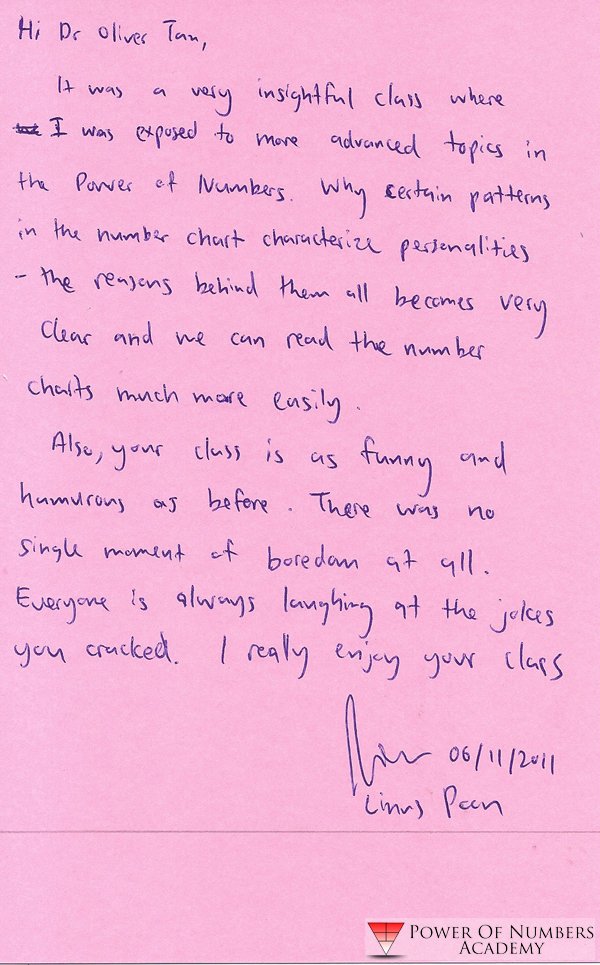 Hi Dr Oliver Tan,
It was a very insightful class where
I was exposed to more advanced topics in
the Power of Numbers. Why certain patterns
in the number chart characterize personalities
- the reasons behind them all becomes very
clear and we can read the number
charts much more easily.
Also, your class is as funny and
humurous as before. There was no
single moment of boredom at all.
Everyone is always laughing at the jokes
you cracked. I really enjoy your class
06/11/2011
Linus Poon
POWER OF NUMBERS
ACADEMY